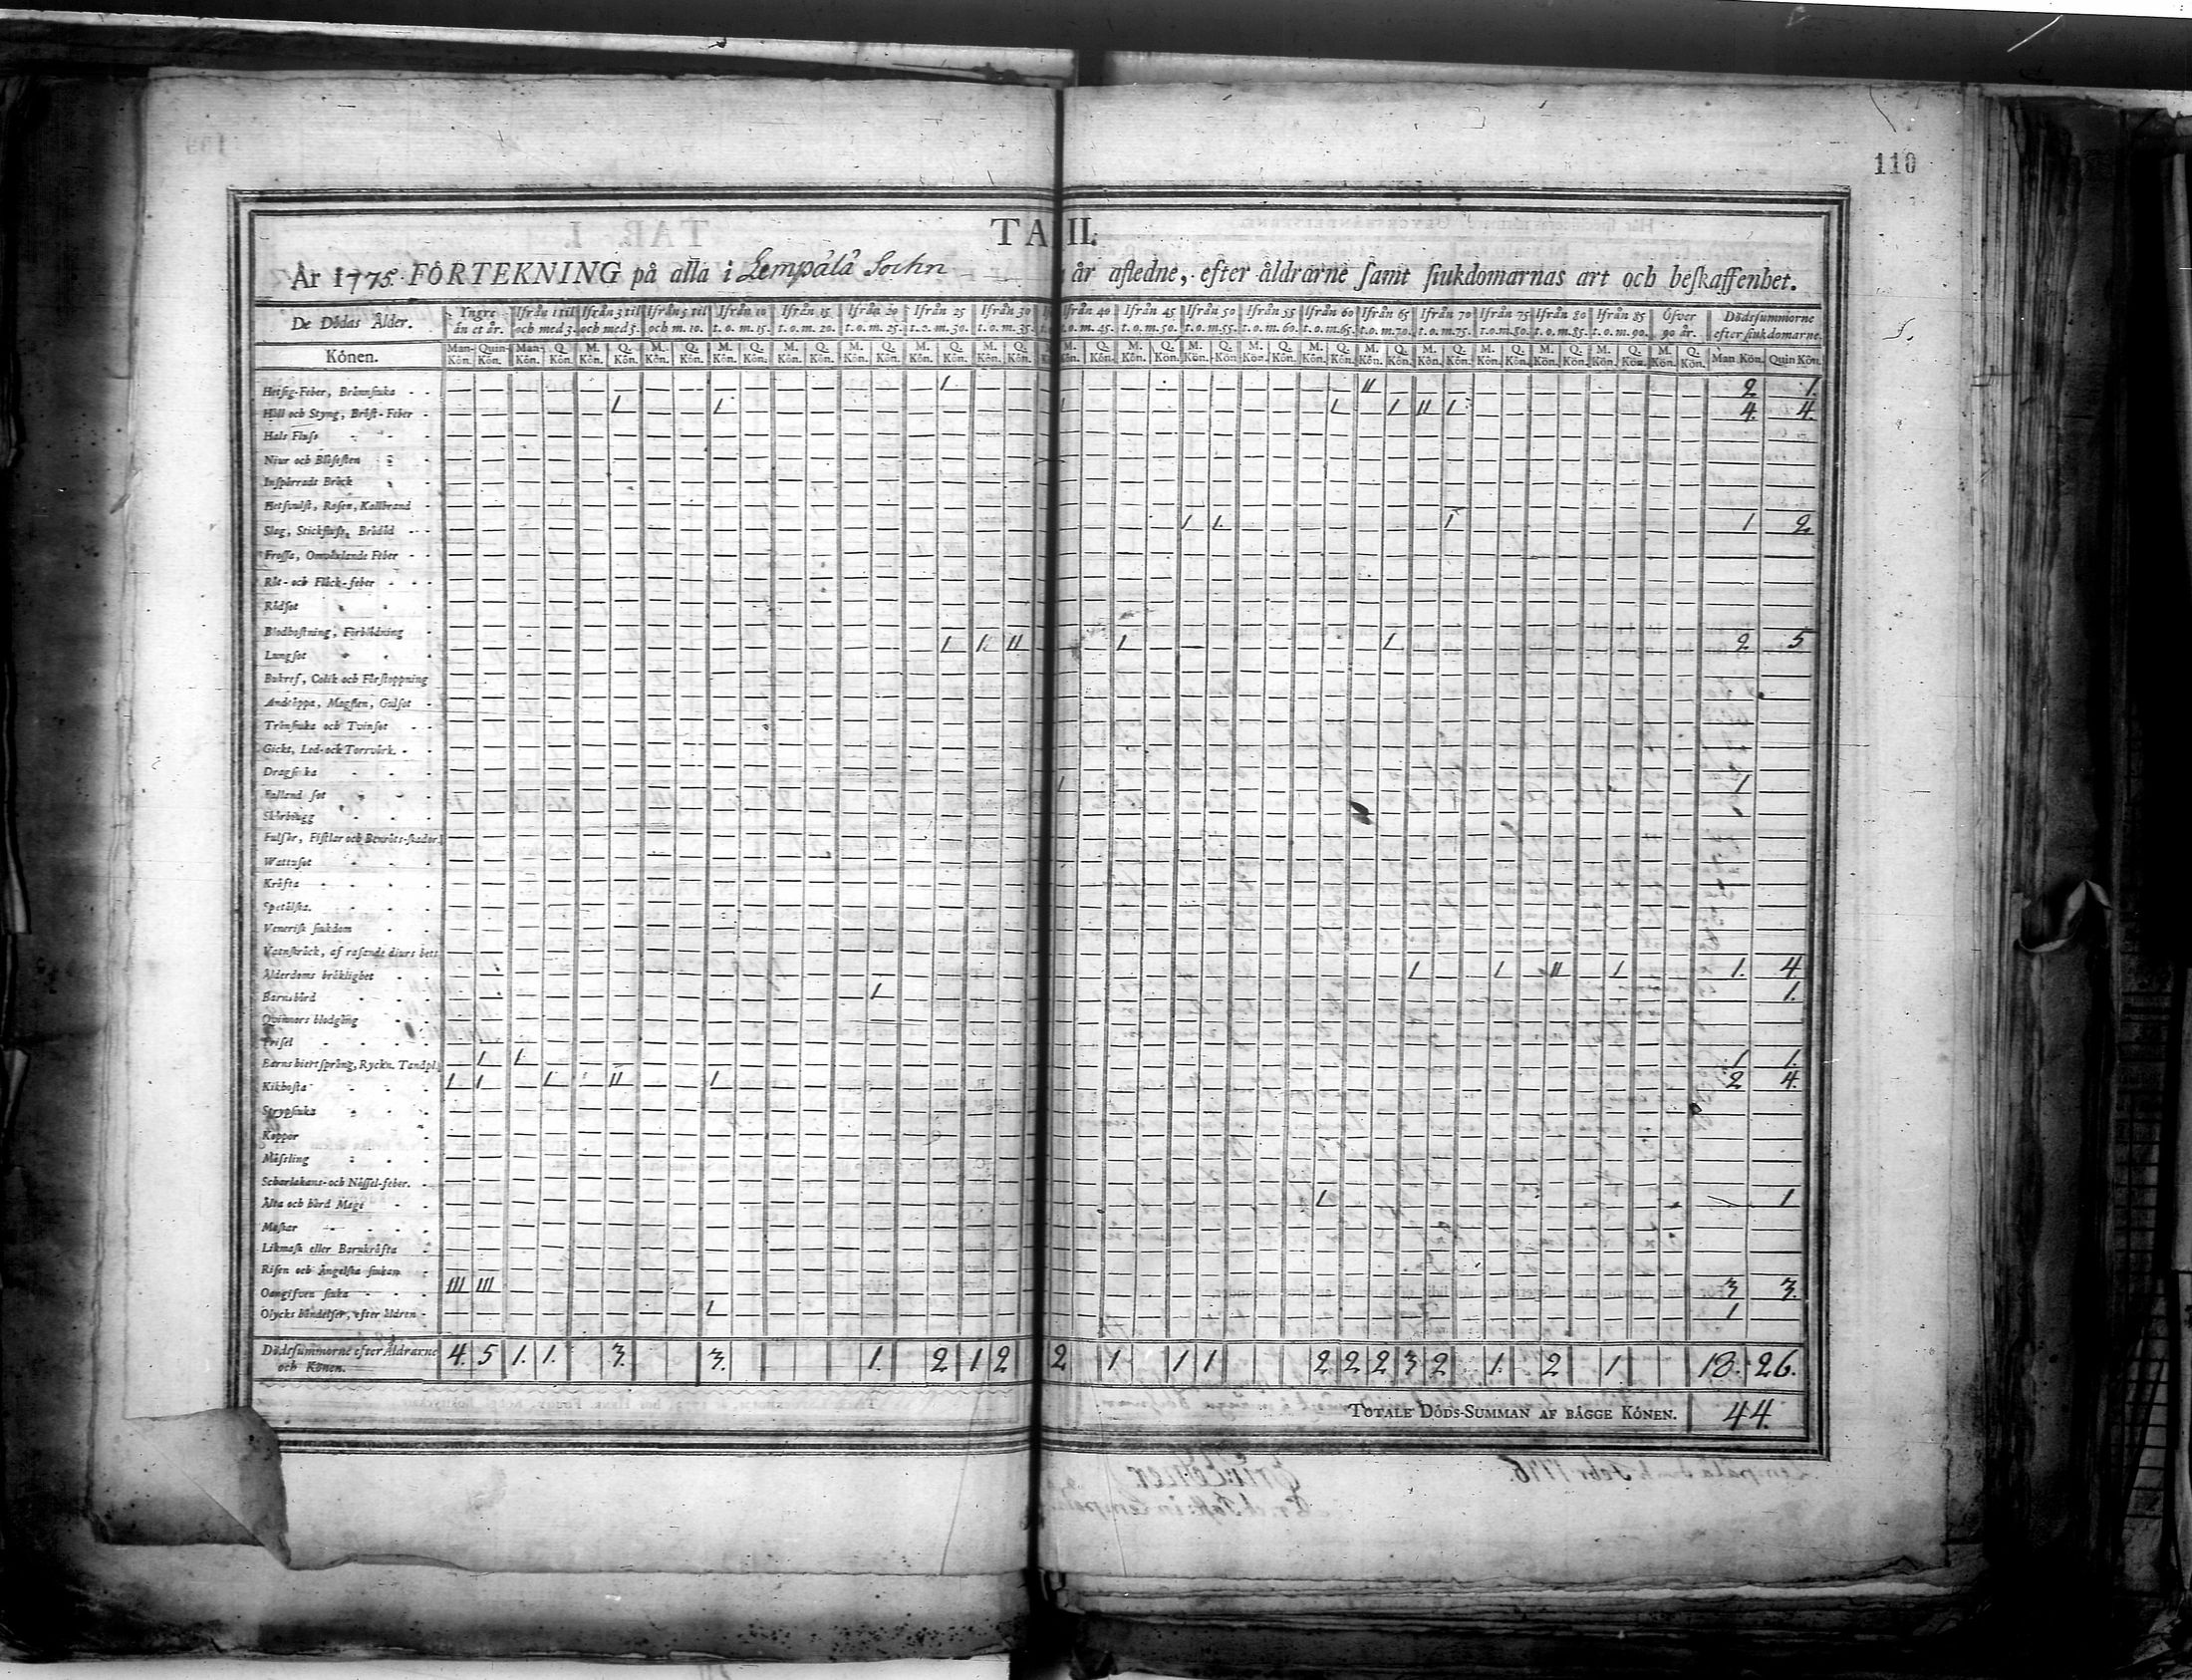 110
TAB II.
År 1775. FÖRTEKNING på alla i Lempälä Sochn år afledne, efter åldrarne samt siukdomarnas art och beskaffenhet.
De Dödas Ålder. Yngre än et år. Ifrån 1 til och med 3. Ifrån 3 til och med 5. Ifrån 5 til och m. 10. Ifrån 10 t.o.m. 15. Ifrån 15 t.o.m. 20. Ifrån 20 t.o.m. 25. Ifrån 25 t.o.m. 30. Ifrån 30 t.o.m. 35. Ifrån 40 t.o.m. 45. Ifrån 45 t.o.m. 50. Ifrån 50 t.o.m. 55. Ifrån 55 t.o.m. 60. Ifrån 60 t.o.m. 65. Ifrån 65 t.o.m. 70. Ifrån 70 t.o.m. 75. Ifrån 75 t.o.m. 80. Ifrån 80 t.o.m. 85. Ifrån 85 t.o.m. 90. Öfver 90 år. Dödssummorne efter siukdomarne.
Könen. Man-Kön. Quin-Kön. Man-Kön. Q. Kön. M. Kön. Q. Kön. M. Kön. Q. Kön. M. Kön. Q. Kön. M. Kön. Q. Kön. M. Kön. Q. Kön. M. Kön. Q. Kön. M. Kön. Q. Kön. M. Kön. Q. Kön. M. Kön. Q. Kön. M. Kön. Q. Kön. M. Kön. Q. Kön. M. Kön. Q. Kön. M. Kön. Q. Kön. M. Kön. Q. Kön. M. Kön. Q. Kön. M. Kön. Q. Kön. M. Kön. Q. Kön. M. Kön. Q. Kön. Man Kön. Quin Kön.
Hetsig-Feber, Brännsiuka 1 II 2 1.
Håll och Styng, Bröst-Feber 1 1 1 1 1 II 1 4. 4.
Hals Fluss
Niur och Blåsesten
Inspärradt Bråck
Hetsvulst, Rosen, Kallbrand
Slag, Stickfluss, Brådöd 1 1. 1 1 2
Frossa, Omväxlande Feber
Röt- och Fläck-feber
Rödsot
Blodhostning, Förblödning
Lungsot 1 1. II 1 1 2 5
Bukref, Colik och Förstoppning
Andtäppa, Magsten, Gulsot
Tränsiuka och Tvinsot
Gickt, Led- och Torrvärk.
Dragsiuka
Falland sot 1 1
Skörbiugg
Fulsår, Fistlar och Benröts-skador
Wattusot
Kräfta
Spetälska.
Venerisk siukdom
Vatnskräck, af rasande diurs bett
Ålderdoms bräklighet 1 1 II 1 1. 4
Barnsbörd 1 1.
Quinnors blodgång
Frisel
Barns hiertsprång, Ryckn. Tandpl. 1 1. 1 1.
Kikhosta 1. 1 1 II 1 2 4.
Strypsiuka
Koppor
Mässling
Scharlakans- och Nässel-feber.
Älta och hård Mage 1 1
Maskar
Likmask eller Barnkräfta
Risen och Ängelska siukan
Oangifven siuka III III 3 3.
Olycks händelser, efter Lidren 1 1
Dödssummorne efter Åldrarne och Könen. 4. 5 1. 1. 3. 3. 1. 2 1 2 2 1. 1 1 2 2 2 3 2 1. 2 1. 18. 26.
TOTALE DÖDS-SUMMAN AF BÄGGE KÖNEN. 44.